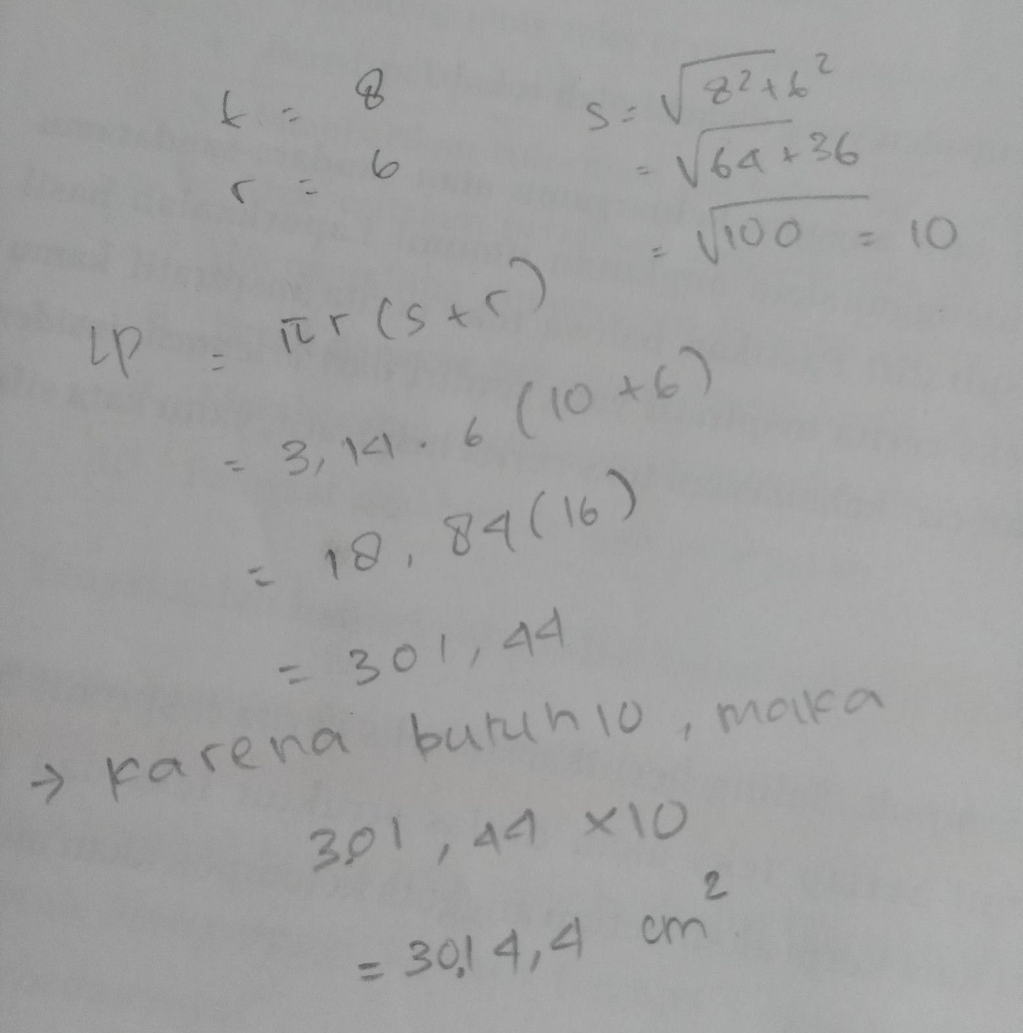 t = 8
r = 6
s = √8²+6²
= √64+36
= √100 = 10
LP = πr(s+r)
= 3,14 . 6 (10+6)
= 18,84(16)
= 301,44
→ karena butuh 10, maka
301,44 x10
= 3014,4 cm²